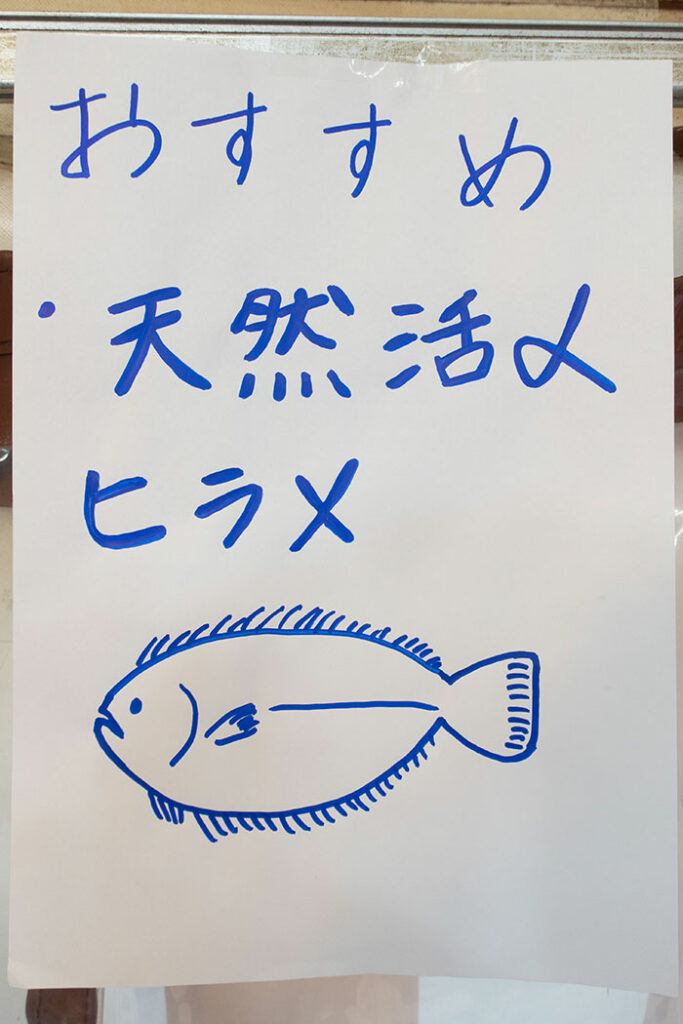 おすすめ
・天然活〆
ヒラメ